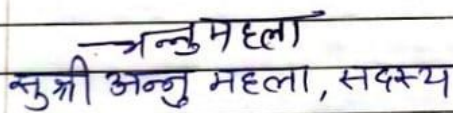 अन्नु महला
सुश्री अन्नु महला, सदस्य